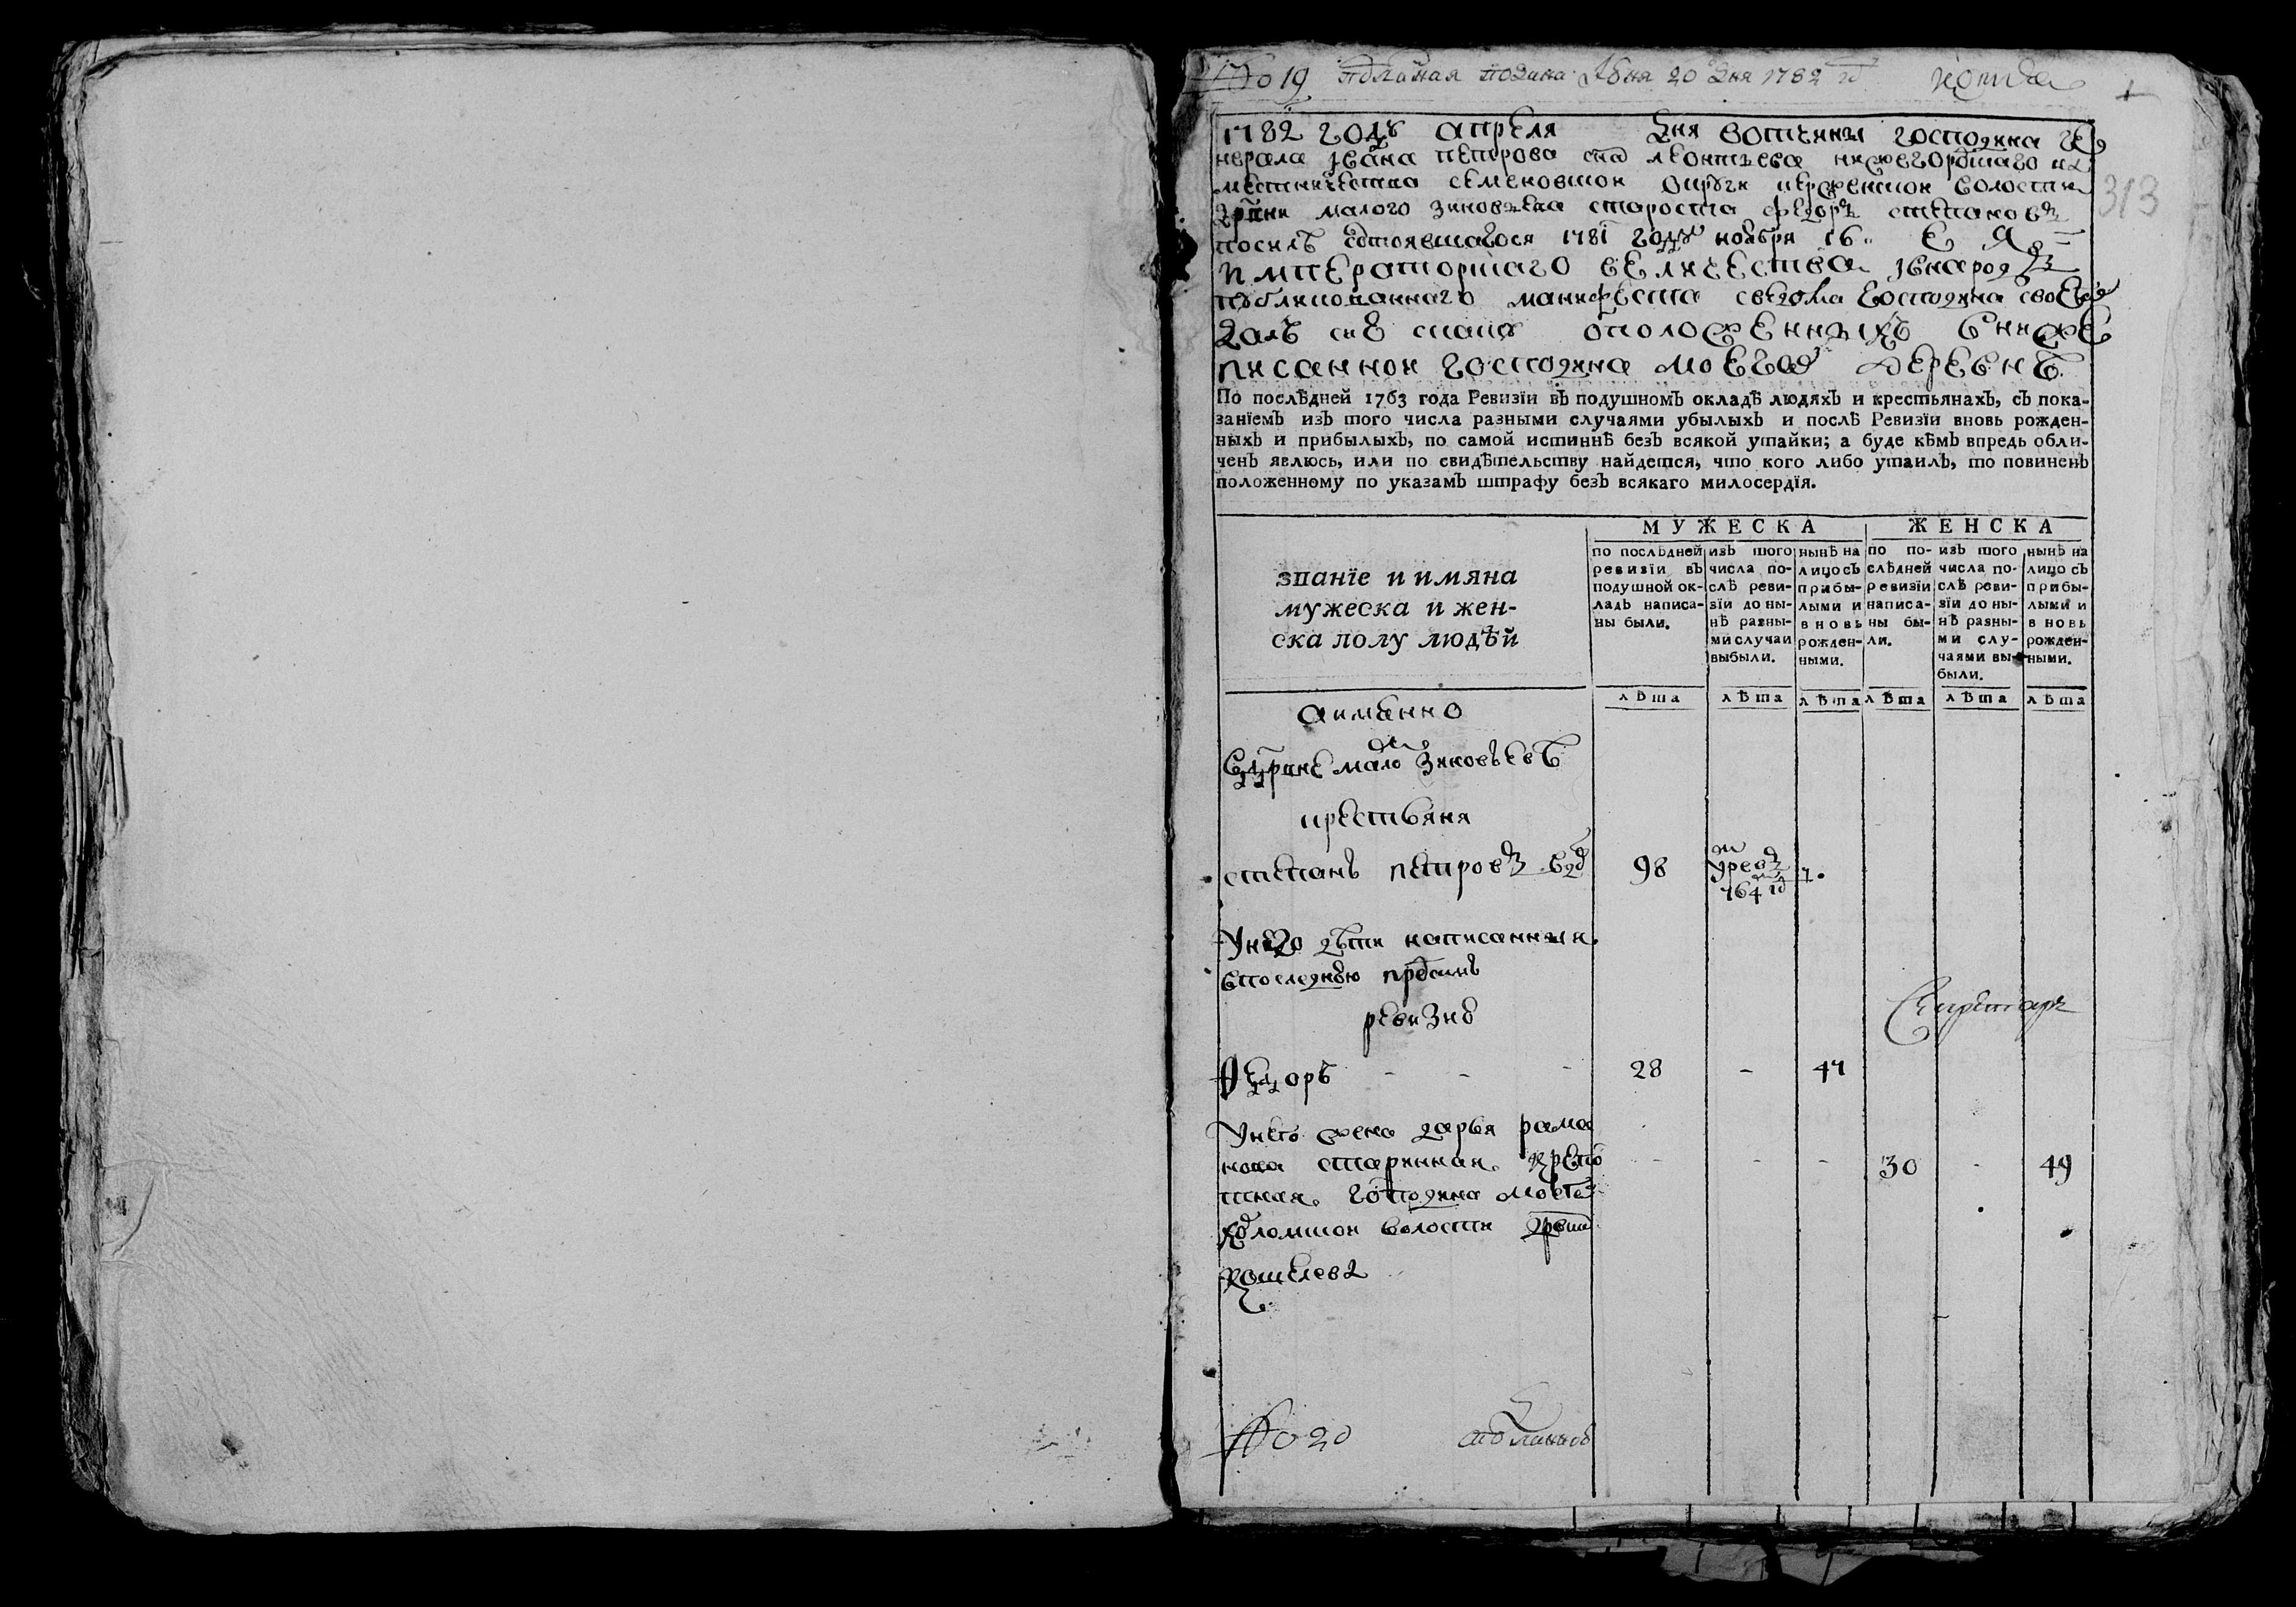 № 19 подлиная подана Июня 20 дня 1782 го
копия
313
1782 году апреля дня вотчины господина ге
нерала Ивана Петрова сна Леонтьева нижегородшаго на
местничества семеновшои округи керженшои волости
дрвни малого зиновьева староста федоръ степановъ
посилѣ состоявшагося 1781 году ноября 16 Е Я
императоршаго величества внародъ
публикованнаго манифеста сведома господина своего
далъ сию скаску оположенныхъ внижѣ
писаннои господина моего деревнѣ
По послѣдней 1763 года Ревизїи вЪ подушномЪ окладѣ людяхЪ и крестьянахЪ, сЪ пока-
занїемЪ изЪ того числа разными случаями убылыхЪ и послѣ Ревизїи вновь рожден-
ныхЪ и прибылыхЪ, по самой истиннѣ безЪ всякой утайки; а буде кѣмЪ впредь обли-
ченЪ явлюсь, или по свидѣтельству найдется, что кого либо утаилЪ, то повиненЪ
положенному по указамЪ штрафу безЪ всякаго милосердїя.
званїе и имяна
мужеска и жен-
ска полу людѣй
МУЖЕСКА
ЖЕНСКА
по послѣдней
ревизїи вЪ
подушной ок-
ладЪ написа-
ны были.
изЪ того
числа по-
слѣ реви-
зїи до ны-
нѣ разны-
ми случаи
выбыли.
нынѣ на
лицо сЪ
прибы-
лыми и
вновь
рожден-
ными.
по по-
слѣдней
ревизїи
написа-
ны бы-
ли.
изЪ того
числа по-
слѣ реви-
зїи до ны-
нѣ разны-
ми слу-
чаями вы-
были.
нынѣ на
лицо сЪ
прибы-
лыми и
вновь
рожден-
ными.
лѣта лѣта лѣта лѣта лѣта лѣта
аимянно
вдрвне мало Зиновьевѣ
крестьяня
степанъ петровъ вдо 98
764 го
унего дѣти написанныя
впоследнюю пред симъ
ревизию
Секретарь
Федоръ - - - 28 - 47
унего жена дарья рама
нова старинная крепо - - - 30 - 49
стная господина моего
волости дрвни
кошелева
№ 20